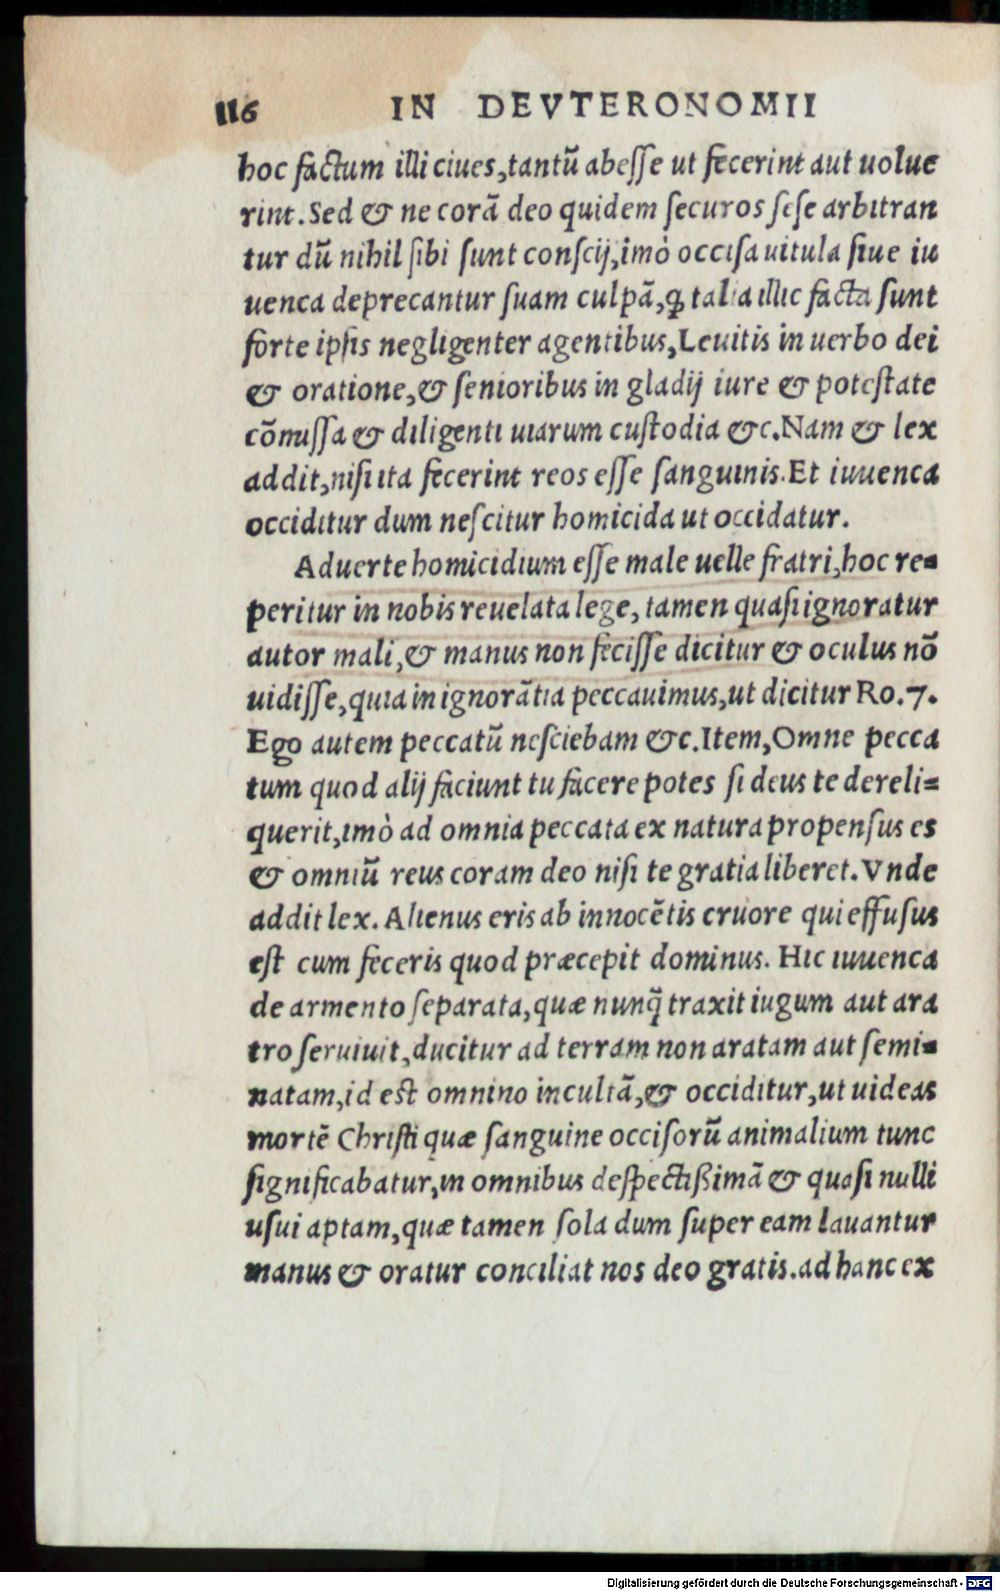 116 IN DEVTERONOMII
hoc factum illi ciues, tantū abesse ut fecerint aut uolue
rint. Sed & ne corā deo quidem securos sese arbitran
tur dū nihil sibi sunt conscij, imò occisa uitula siue iu
uenca deprecantur suam culpā, ꝙ talia illic facta sunt
forte ipsis negligenter agentibus, Leuitis in uerbo dei
& oratione, & senioribus in gladij iure & potestate
cōmissa & diligenti uiarum custodia &c. Nam & lex
addit, nisi ita fecerint reos esse sanguinis. Et iuuenca
occiditur dum nescitur homicida ut occidatur.
Aduerte homicidium esse male uelle fratri, hoc re=
peritur in nobis reuelata lege, tamen quasi ignoratur
autor mali, & manus non fecisse dicitur & oculus nō
uidisse, quia in ignorātia peccauimus, ut dicitur Ro. 7.
Ego autem peccatū nesciebam &c. Item, Omne pecca
tum quod alij faciunt tu facere potes si deus te dereli=
querit, imò ad omnia peccata ex natura propensus es
& omniū reus coram deo nisi te gratia liberet. Vnde
addit lex. Alienus eris ab innocētis cruore qui effusus
est cum feceris quod præcepit dominus. Hic iuuenca
de armento separata, quæ nunq̄ traxit iugum aut ara
tro seruiuit, ducitur ad terram non aratam aut semi=
natam, id est omnino incultā, & occiditur, ut uideas
mortē Christi quæ sanguine occisorū animalium tunc
significabatur, in omnibus despectißimā & quasi nulli
usui aptam, quæ tamen sola dum super eam lauantur
manus & oratur conciliat nos deo gratis. ad hanc ex
Digitalisierung gefördert durch die Deutsche Forschungsgemeinschaft - DFG